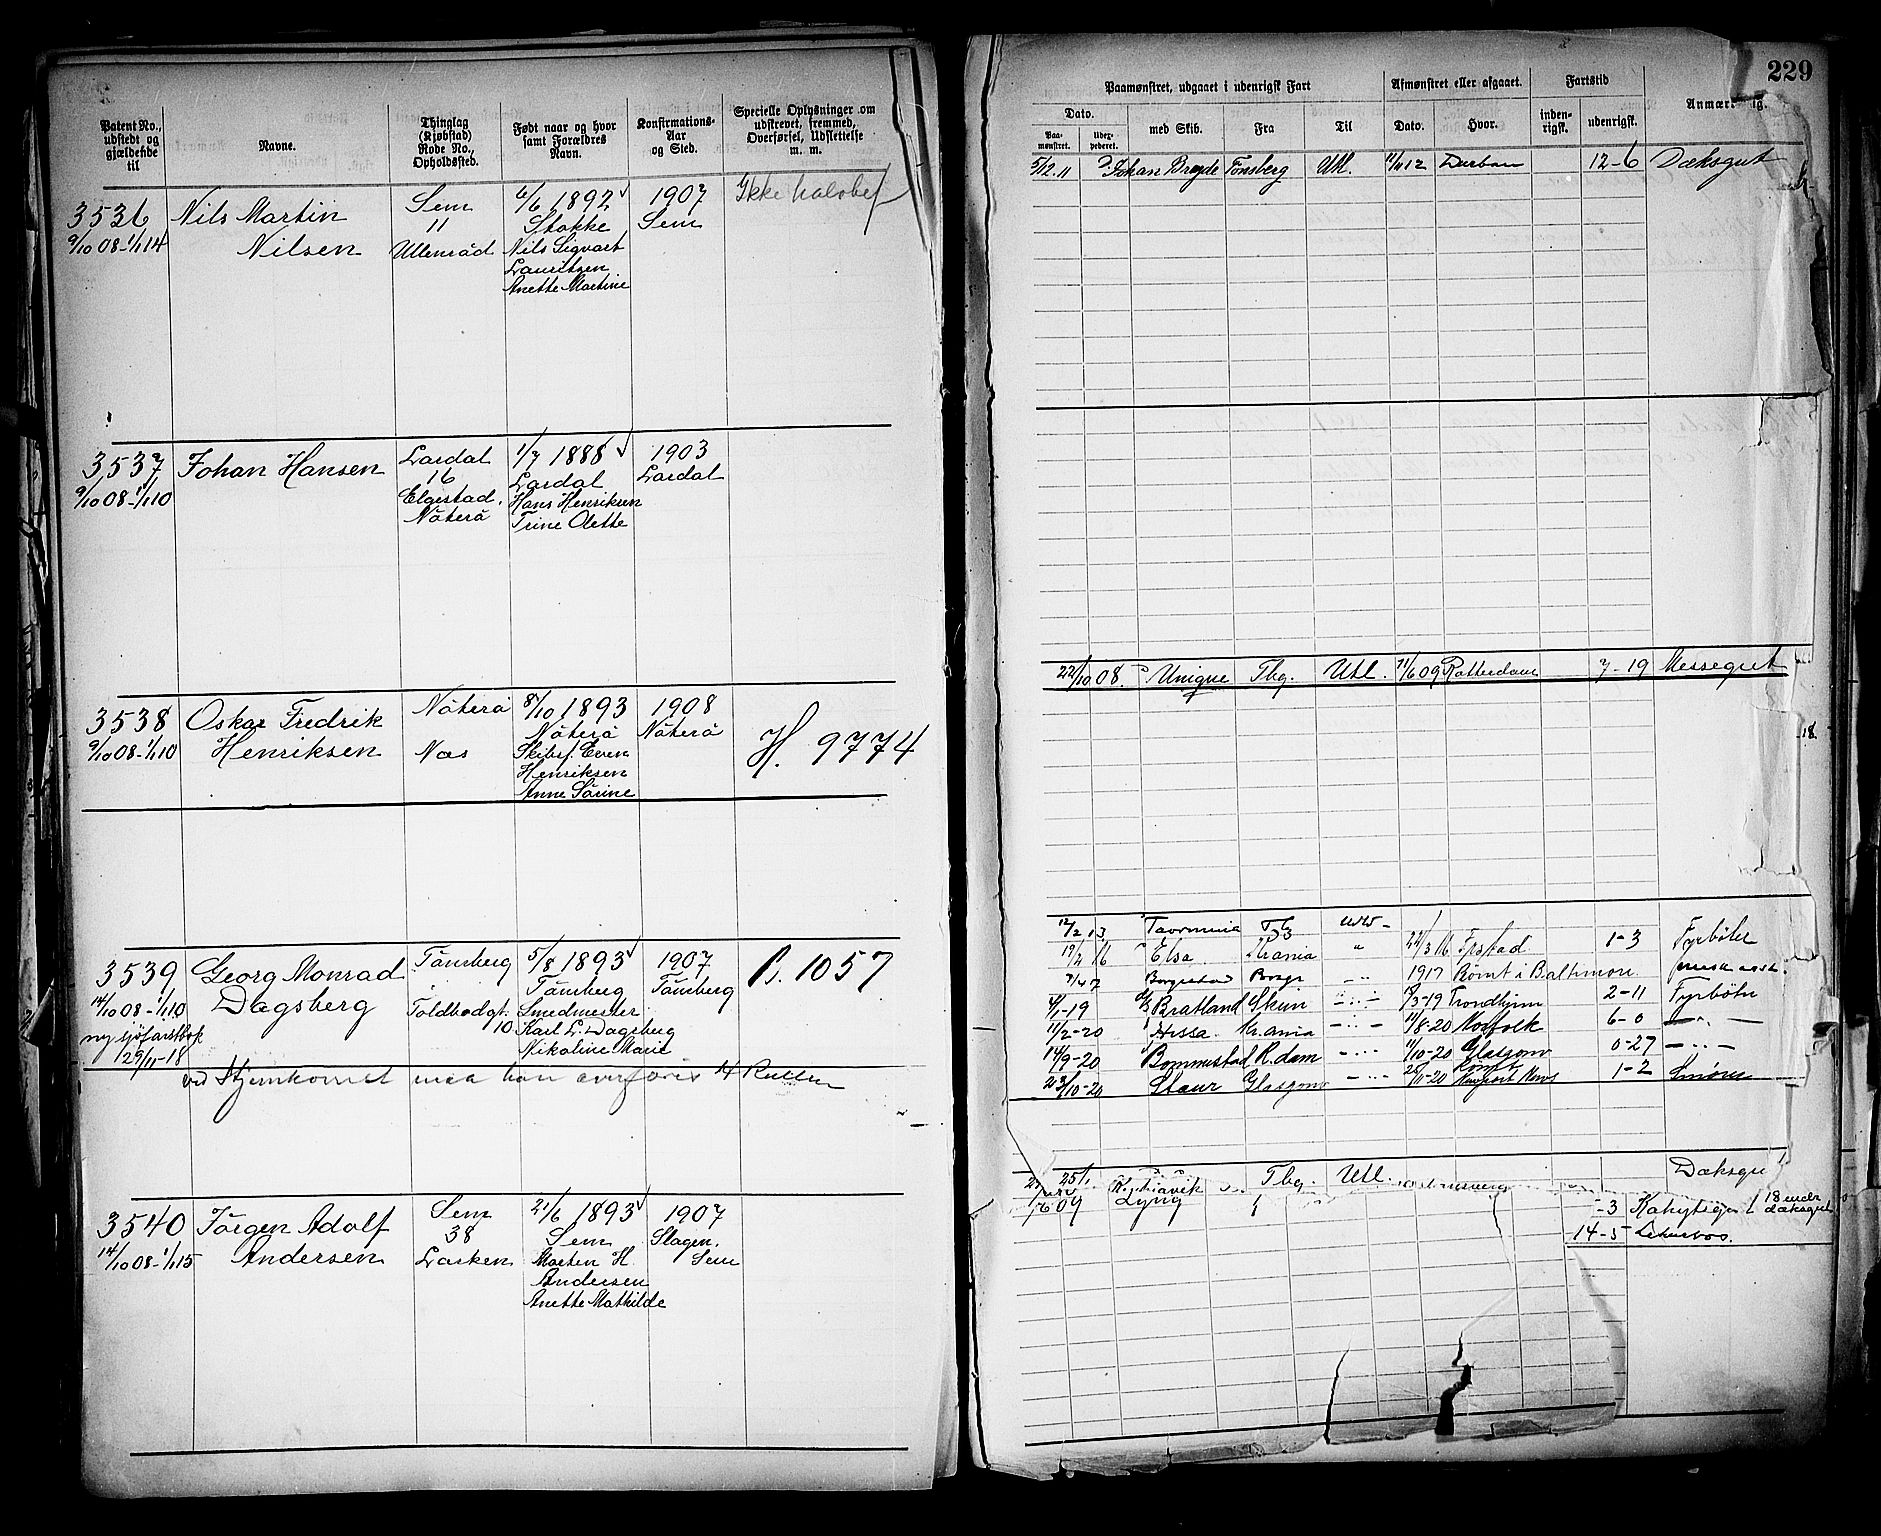 Patent No., udstedt og gjældende til
Navne.
Thinglag (Kjøbstad) Rode No., Opholdssted.
Født naar og hvor samt Forældres Navn.
Konfirmations-Aar og Sted.
Specielle Oplysninger om udskrevet, fremmed, Overførsel, Udslettelse m. m.
3536
9/10 08-1/1 14
Nils Martin
Nilsen
Sem
11
Ullenrød
6/6 1892
Stokke
Nils Sigvart
Lauritzen
Anette Martine
1907
Sem
Ikke
3537
9/10 08-1/1 10
Johan Hansen
Lardal
16
Elgestad.
Nøterø
1/7 1888
Lardal
Hans Henriksen
Trine Olette
1903
Lardal
3538
9/10 08-1/1 10
Oskar Fredrik
Henriksen
Nøterø
Næs
8/10 1893
Nøterø
Skibsf. Even
Henriksen
Anne Sørine
1908
Nøterø
H. 9774
3539
14/10 08-1/1 10
ny sjøfartsbok
29/11-18
Georg Monrad
Dagsberg
Tønsberg
Toldbodgt.
10
5/8 1893
Tønsberg
Smedmester
Karl L. Dagsberg
Nikoline Marie
1907
Tønsberg
1057
ved Hjemkomst maa han overføres Rullen
3540
14/10 08-1/1 15
Jørgen Adolf
Andersen
Sem
38
Lasken
21/6 1893
Sem
Morten H.
Andersen
Anette Mathilde
1907
Slagen.
Sem
229
Paamønstret, udgaaet i udenrigsk Fart
Afmønstret eller afgaaet.
Fartstid
Dato.
med Skib.
Fra
Til
Dato.
Hvor.
inden-rigsk.
udenrigsk.
Paa-mønstret.
5/12.11 Johan Bryde Tønsberg Utl. 11/11 12 Durban 12-6 Dæksgut
22/10 08. Unique Tbg. Utl. 11/6 09 Rotterdam 7-19 Messegut
12/2 13. Taormina Tbg
19/2 16 Elsa Krania " 22/3 16 1-3 Fyrbøter
Borgestad " 1917 Rømt i Baltimore
4/1-19 Bratland Skien 3-19 Trondhjem 2-11 Fyrbøter
11/2-20 Hissa. Krania 11/8-20 Norfolk 6-0 — " —
14/9-20 Bommestad R.dam 11/10-20 Glasgow 0-27 — " —
23/10-20 Staur Glasgow 25/11-20 Rømt Newport News 1-2 Smører
25/1 Tbg. Utl. Dæksgut
09 Lyng -3
14-5